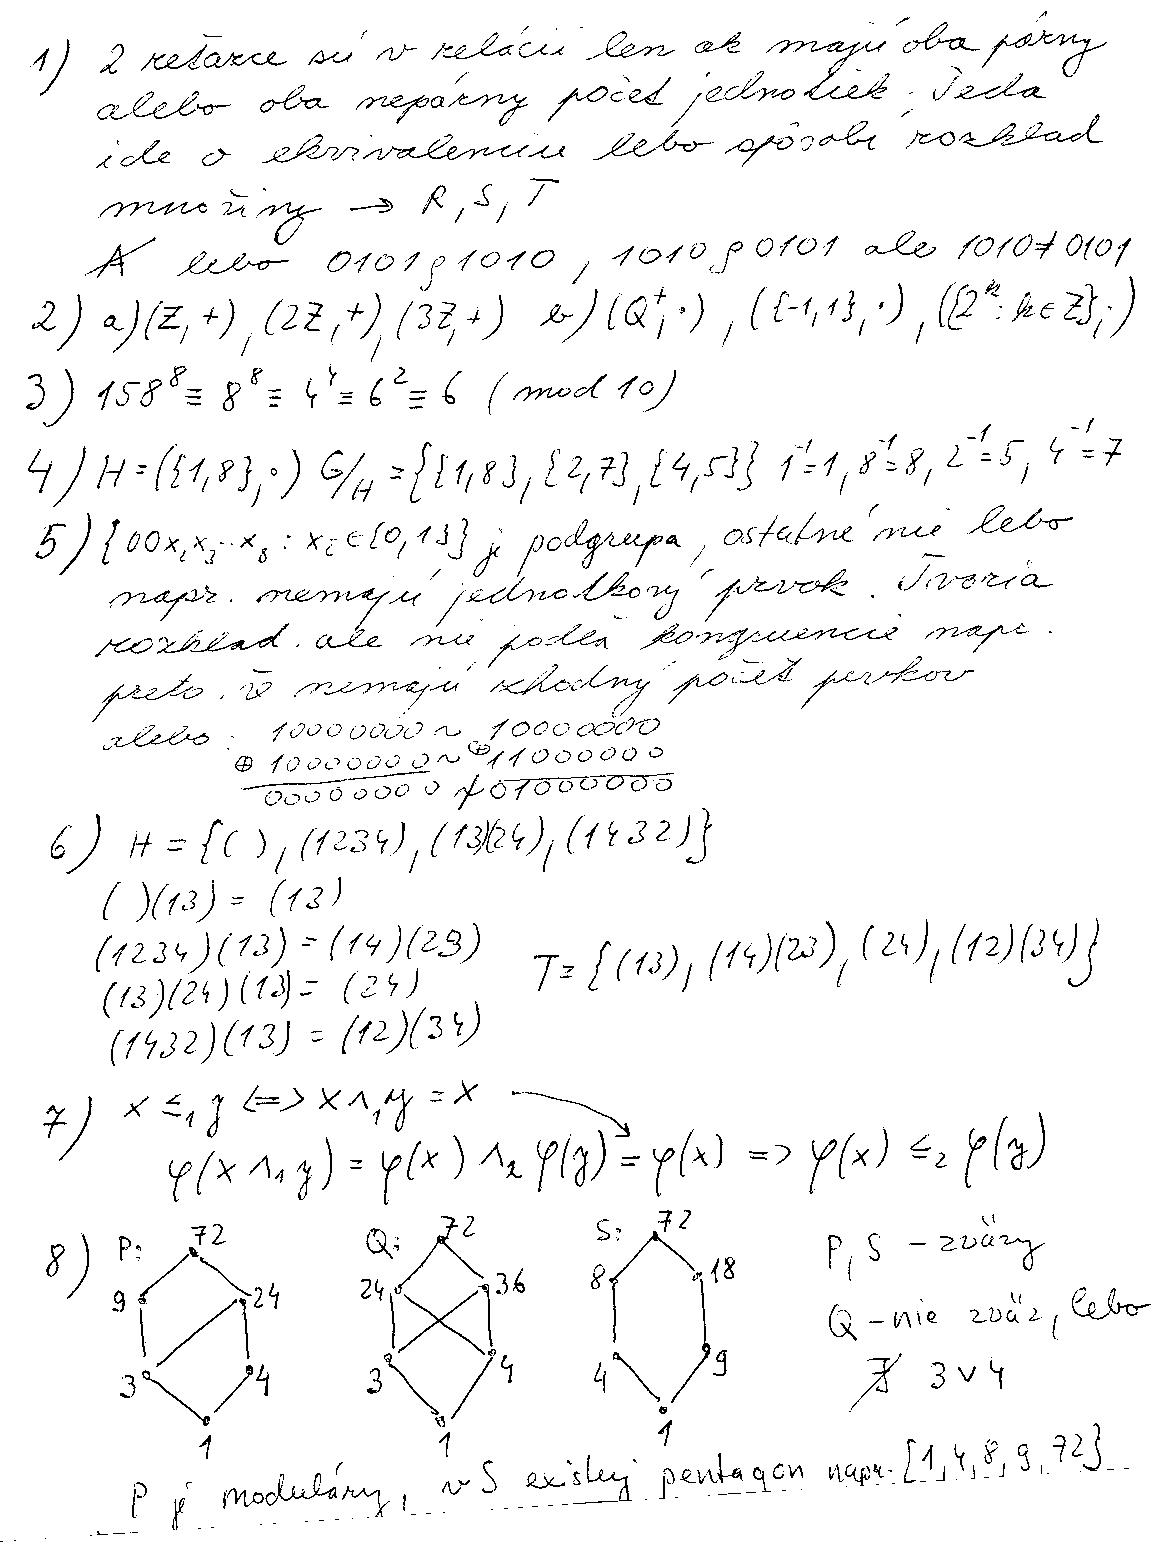 1) 2 reťazce sú v relácii len ak majú oba párny
alebo oba nepárny počet jednotiek. Teda
ide o ekvivalenciu lebo spôsobí rozklad
množiny → R, S, T
A lebo 0101 ρ 1010, 1010 ρ 0101 ale 1010 ≠ 0101
2) a) (Z,+), (2Z,+), (3Z,+) b) (Q⁺,·), ({-1,1},·), ({2ᵏ: k∈Z},·)
3) 158⁸ ≡ 8⁸ ≡ 4⁴ ≡ 6² ≡ 6 (mod 10)
4) H = ({1,8},·) G/H = {{1,8},{2,7},{4,5}} 1⁻¹=1, 8⁻¹=8, 2⁻¹=5, 4⁻¹=7
5) {00x₂x₃…x₈ : xᵢ∈{0,1}} je podgrupa, ostatné nie lebo
napr. nemajú jednotkový prvok. Tvoria
rozklad ale nie podľa kongruencie napr.
preto, ž nemajú zhodný počet prvkov
alebo: 10000000 ~ 10000000
⊕ 10000000 ~ ⊕ 11000000
00000000 ≁ 01000000
6) H = {( ), (1234), (13)(24), (1432)}
( )(13) = (13)
(1234)(13) = (14)(23)
(13)(24)(13) = (24)
(1432)(13) = (12)(34)
T = {(13), (14)(23), (24), (12)(34)}
7) x ≤₁ y <=> x ∧₁ y = x
φ(x ∧₁ y) = φ(x) ∧₂ φ(y) = φ(x) => φ(x) ≤₂ φ(y)
8) P: 72
9 24
3 4
1
Q: 72
24 36
3 4
1
S: 72
8 18
4 9
1
P, S - zväzy
Q - nie zväz, lebo
∄ 3 ∨ 4
P je modulárny, v S existuj pentagon napr. {1, 4, 8, 9, 72}